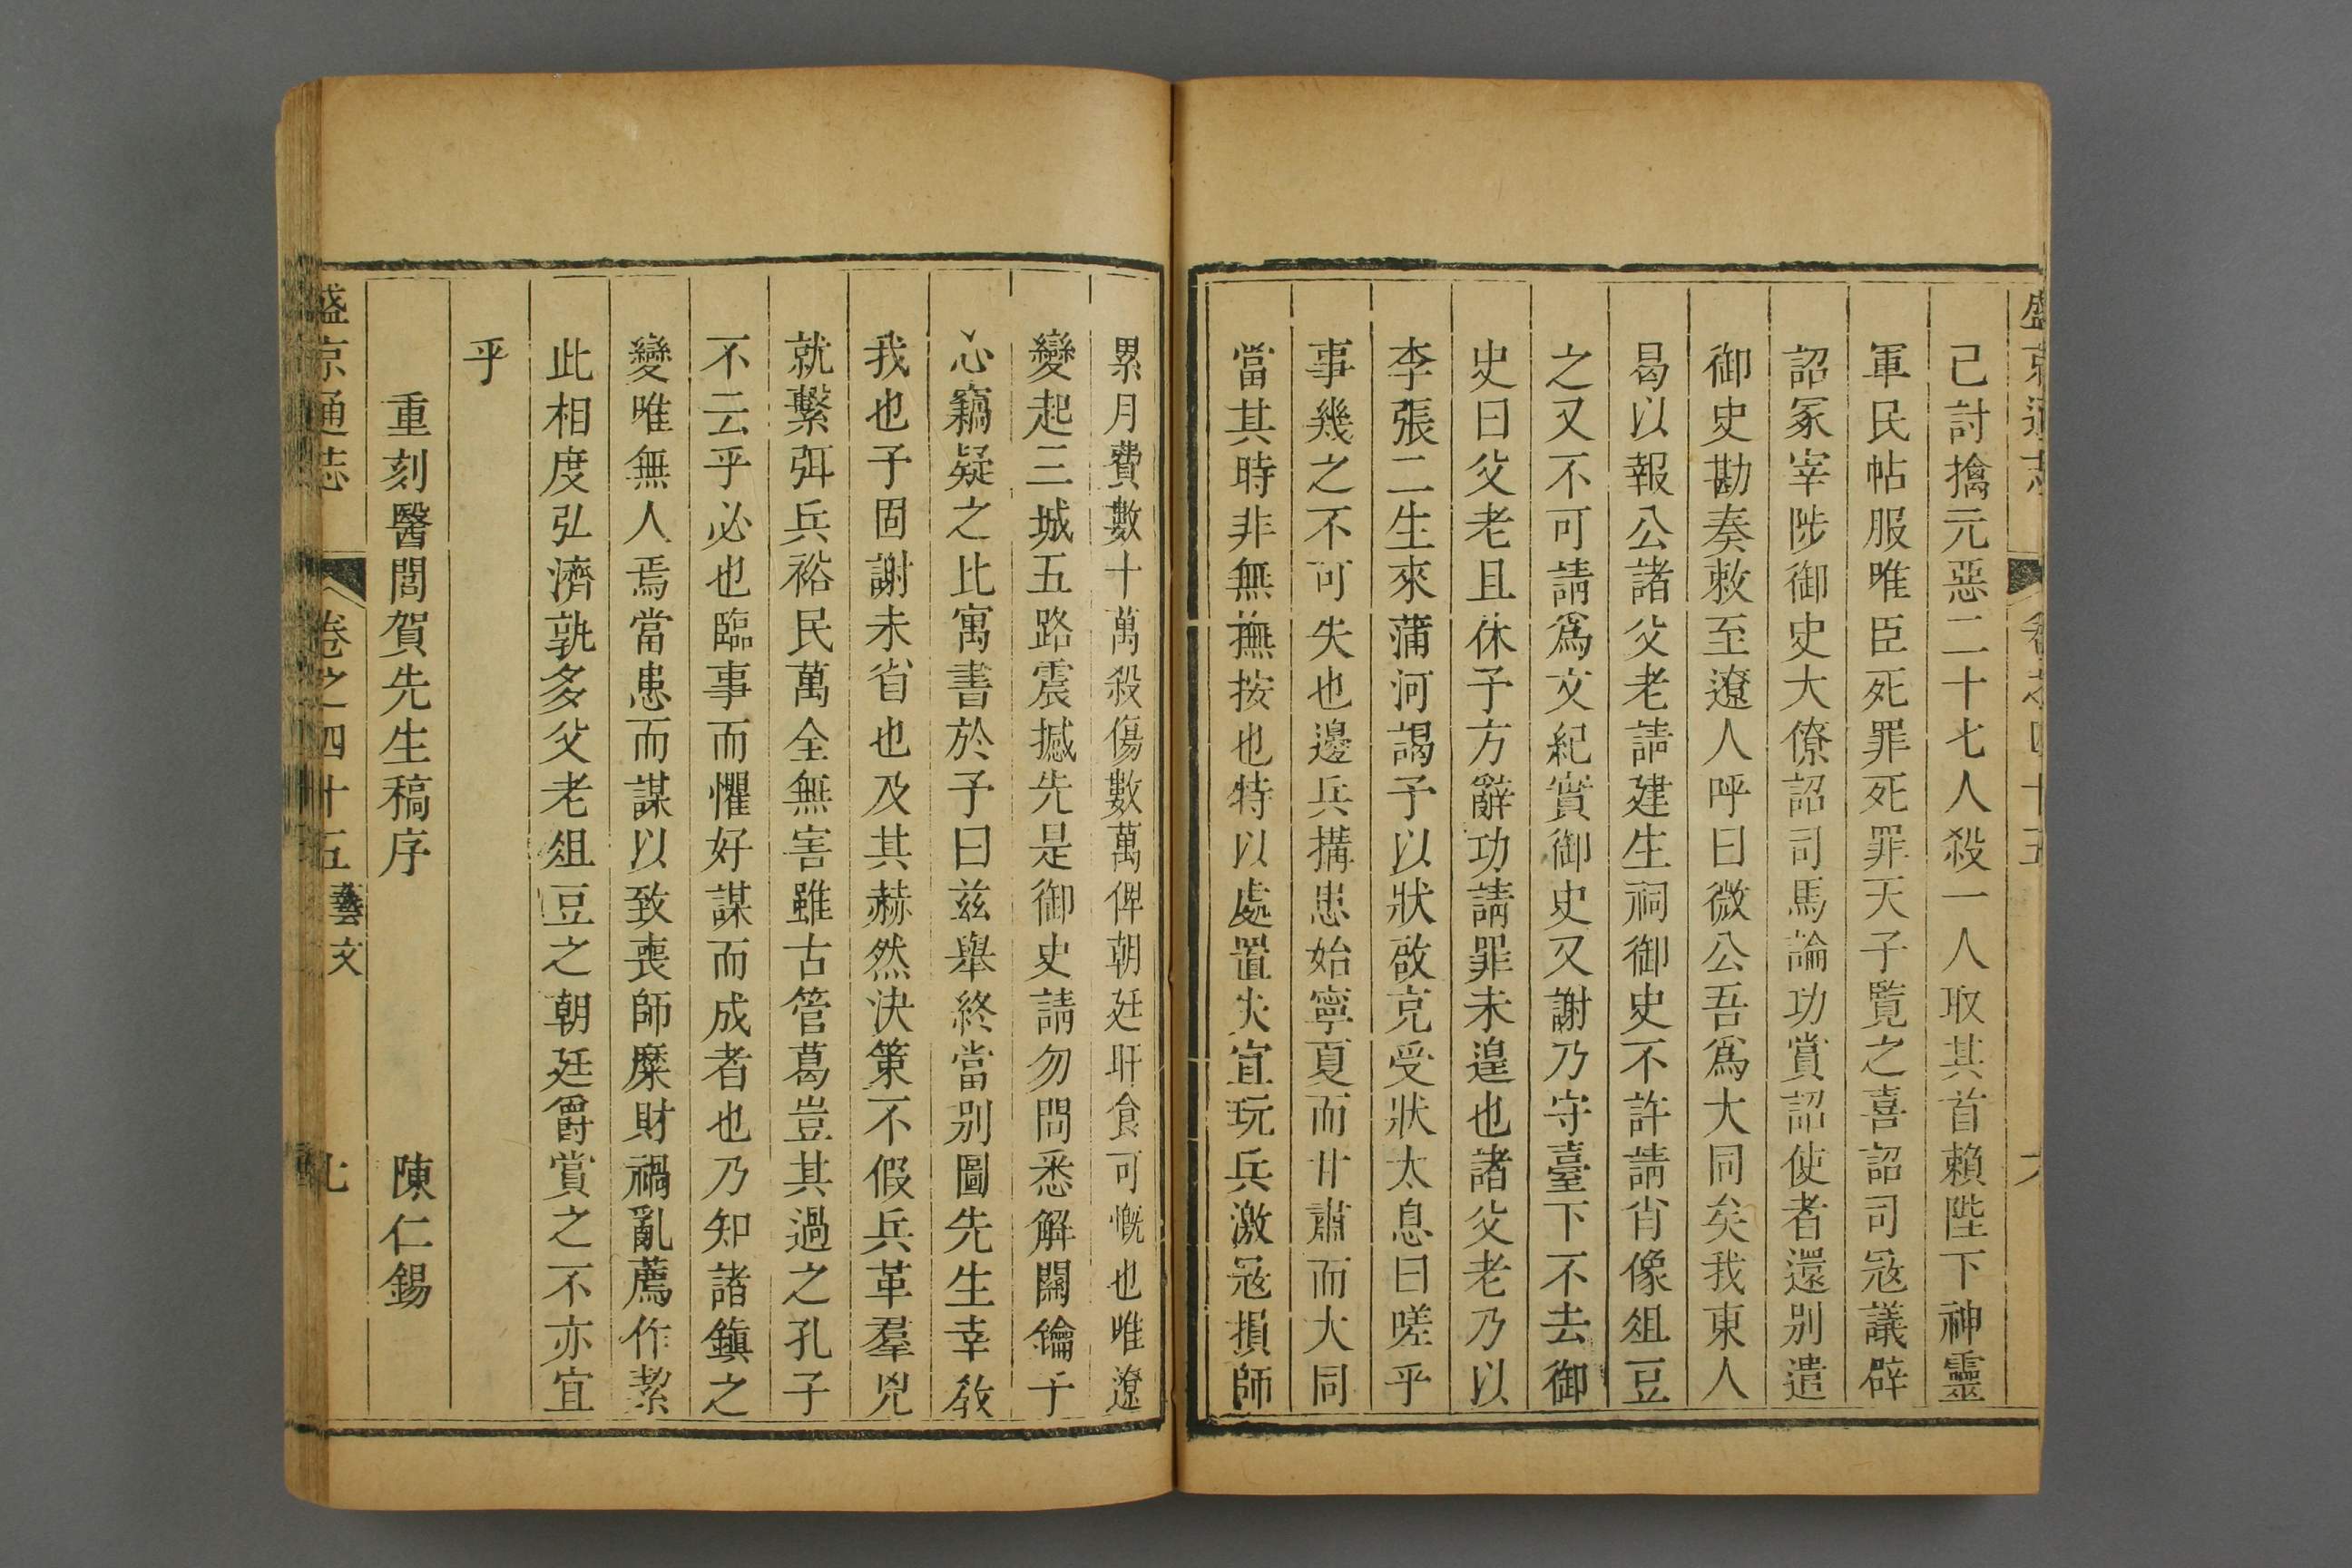 盛京通志 卷之四十五 六
己討擒元惡二十七人殺一人取其首賴陛下神靈
軍民帖服唯臣死罪死罪天子覽之喜詔司冦議辟
詔冢宰陟御史大僚詔司馬論功賞詔使者還别遣
御史勘奏敕至遼人呼曰微公吾爲大同矣我東人
曷以報公諸父老請建生祠御史不許請肖像俎豆
之又不可請爲文紀實御史又謝乃守臺下不去御
史曰父老且休予方辭功請罪未遑也諸父老乃以
李張二生來蒲河謁予以狀啟克受狀太息曰嗟乎
事幾之不可失也邊兵搆患始寧夏而甘肅而大同
當其時非無撫按也特以處置失宜玩兵激冦損師
累月費數十萬殺傷數萬俾朝廷旰食可慨也唯遼
變起三城五路震撼先是御史請勿問悉解關鑰于
心竊疑之比寓書於予曰兹舉終當别圖先生幸教
我也予固謝未省也及其赫然決策不假兵革羣兇
就繫弭兵裕民萬全無害雖古管葛豈其過之孔子
不云乎必也臨事而懼好謀而成者也乃知諸鎮之
變唯無人焉當患而謀以致喪師糜財禍亂薦作絜
此相度弘濟孰多父老俎豆之朝廷爵賞之不亦宜
乎
重刻醫閭賀先生稿序 陳仁錫
盛京通志 卷之四十五 藝文 七